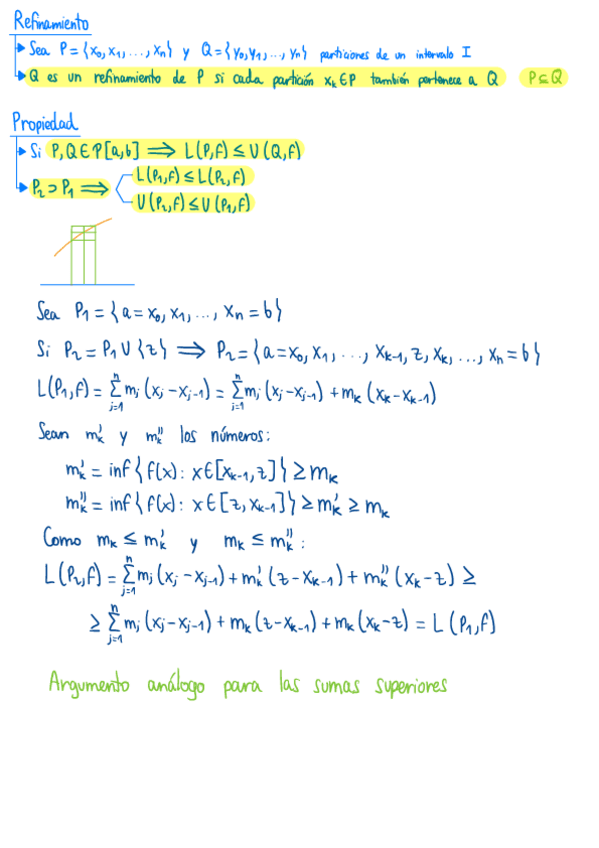 Refinamiento
Sea P = {x₀, x₁, ..., xₙ} y Q = {y₀, y₁, ..., yₙ} particiones de un intervalo I
Q es un refinamiento de P si cada partición xₖ ∈ P también pertenece a Q P ⊆ Q
Propiedad
Si P, Q ∈ P[a,b] ⟹ L(P,f) ≤ U(Q,f)
P₂ ⊃ P₁ ⟹
L(P₁,f) ≤ L(P₂,f)
U(P₂,f) ≤ U(P₁,f)
Sea P₁ = {a = x₀, x₁, ..., xₙ = b}
Si P₂ = P₁ ∪ {z} ⟹ P₂ = {a = x₀, x₁, ..., xₖ₋₁, z, xₖ, ..., xₙ = b}
L(P₁,f) = ∑ⱼ₌₁ⁿ mⱼ (xⱼ - xⱼ₋₁) = ∑ⱼ₌₁ⁿ mⱼ (xⱼ - xⱼ₋₁) + mₖ (xₖ - xₖ₋₁)
Sean mₖ' y mₖ'' los números:
mₖ' = inf {f(x): x ∈ [xₖ₋₁, z]} ≥ mₖ
mₖ'' = inf {f(x): x ∈ [z, xₖ₋₁]} ≥ mₖ' ≥ mₖ
Como mₖ ≤ mₖ' y mₖ ≤ mₖ'':
L(P₂,f) = ∑ⱼ₌₁ⁿ mⱼ (xⱼ - xⱼ₋₁) + mₖ' (z - xₖ₋₁) + mₖ'' (xₖ - z) ≥
≥ ∑ⱼ₌₁ⁿ mⱼ (xⱼ - xⱼ₋₁) + mₖ (z - xₖ₋₁) + mₖ (xₖ - z) = L (P₁,f)
Argumento análogo para las sumas superiores